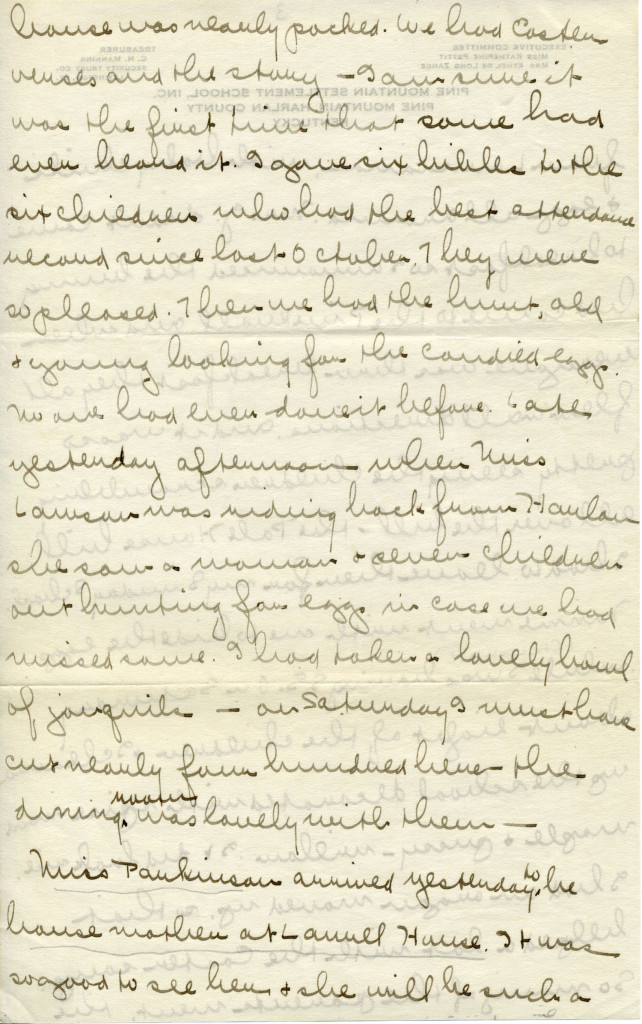 house was nearly packed. We had Easter
verses and the story – I am sure it
was the first time that some had
even heard it. I gave six bibles to the
six children who had the best attendance
record since last October. They were
so pleased. Then we had the hunt, old
& young looking for the candied eggs.
No one had ever done it before. Late
yesterday afternoon when Miss
Lawson was riding back from Harlan
she saw a woman & seven children
out hunting for eggs in case we had
missed some. I had taken a lovely bowl
of jonquils – on Saturday I must have
cut nearly four hundred here – the
dining room was lovely with them –
Miss Parkinson arrived yesterday to be
house mother at Laurel House. It was
so good to see her & she will be such a
EXECUTIVE COMMITTEE
MISS KATHERINE PETTIT
MRS. ETHEL DE LONG ZANDE
TREASURER
C. N. MANNING
SECURITY TRUST CO.
PINE MOUNTAIN SETTLEMENT SCHOOL, INC.
PINE MOUNTAIN, HARLAN COUNTY
KENTUCKY